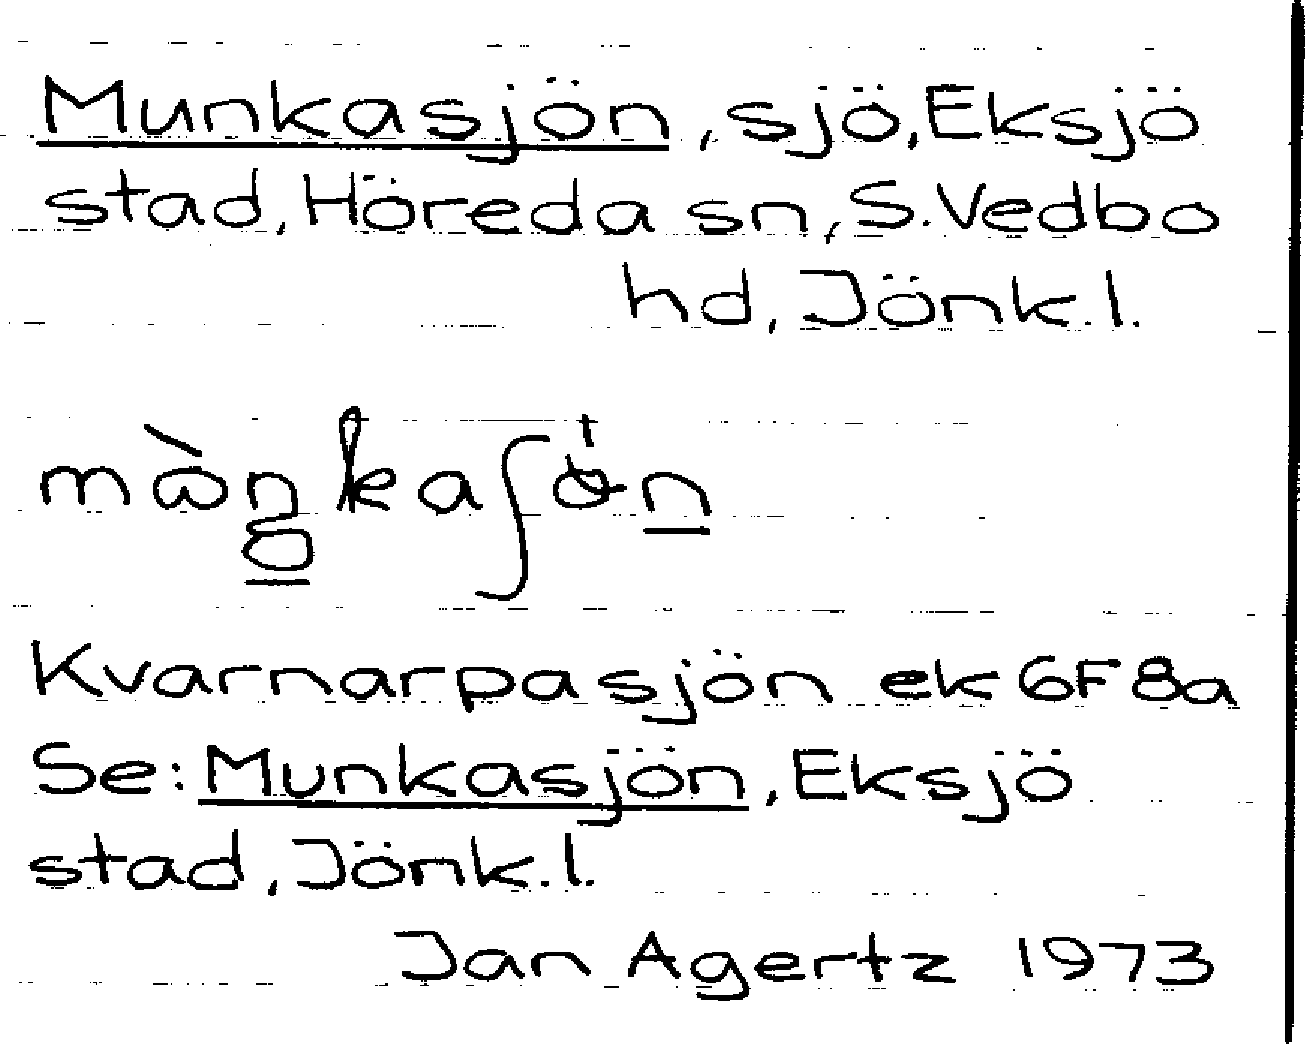 Munkasjön, sjö, Eksjö
stad, Höreda sn, S. Vedbo
hd, Jönk. l.
Kvarnarpasjön ek 6F 8a
Se: Munkasjön, Eksjö
stad, Jönk. l.
Jan Agertz 1973